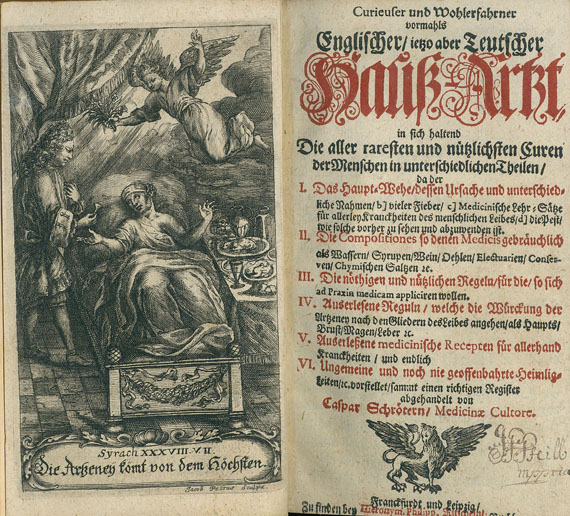 Syrach XXXVIII. V. II.
Die Artzeney kömt von dem Höchsten.
Jacob Petrus sculpsit
Curieuser und Wohlerfahrner
vormahls
Englischer / ietzo aber Teutscher
Hauß-Artzt,
in sich haltend
Die aller raresten und nützlichsten Curen
der Menschen in unterschiedlichen Theilen /
da der
I. Das Haupt-Wehe / dessen Ursache und unterschied-
liche Nahmen / b] vieler Fieber / c] Medicinische Lehr-Sätze
für allerley Kranckheiten des menschlichen Leibes / d] die Pest /
wie solche vorher zu sehen und abzuwenden ist.
II. Die Compositiones so denen Medicis gebräuchlich
als Wassern / Syrupen / Wein / Oehlen / Electuarien / Conser-
ven / Chymischen Saltzen ꝛc.
III. Die nöthigen und nützlichen Regeln / für die / so sich
ad Praxin medicam appliciren wollen.
IV. Auserlesene Reguln / welche die Würckung der
Artzeney nach den Gliedern des Leibes angehen / als Haupts /
Brust / Magen / Leber ꝛc.
V. Auserleßene medicinische Recepten für allerhand
Kranckheiten / und endlich
VI. Ungemeine und noch nie geoffenbahrte Heimlig-
keiten / ꝛc. vorstellet / sammt einen richtigen Register
abgehandelt von
Caspar Schrötern / Medicinæ Cultore.
Franckfurdt und Leipzig /
Zu finden bey Hieronym. Philipp.